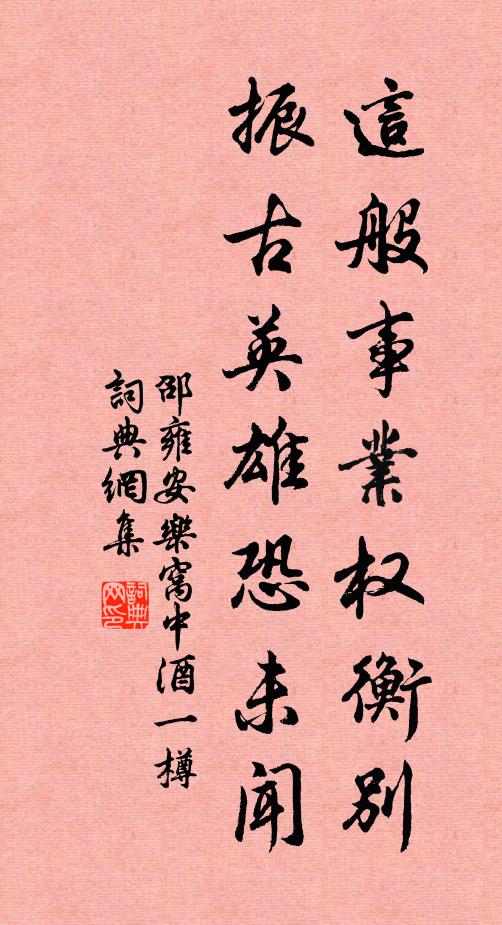 這般事業权衡别
振古英雄恐未闻
邵雍安樂窩中酒一樽
詞典網集
詞典网印